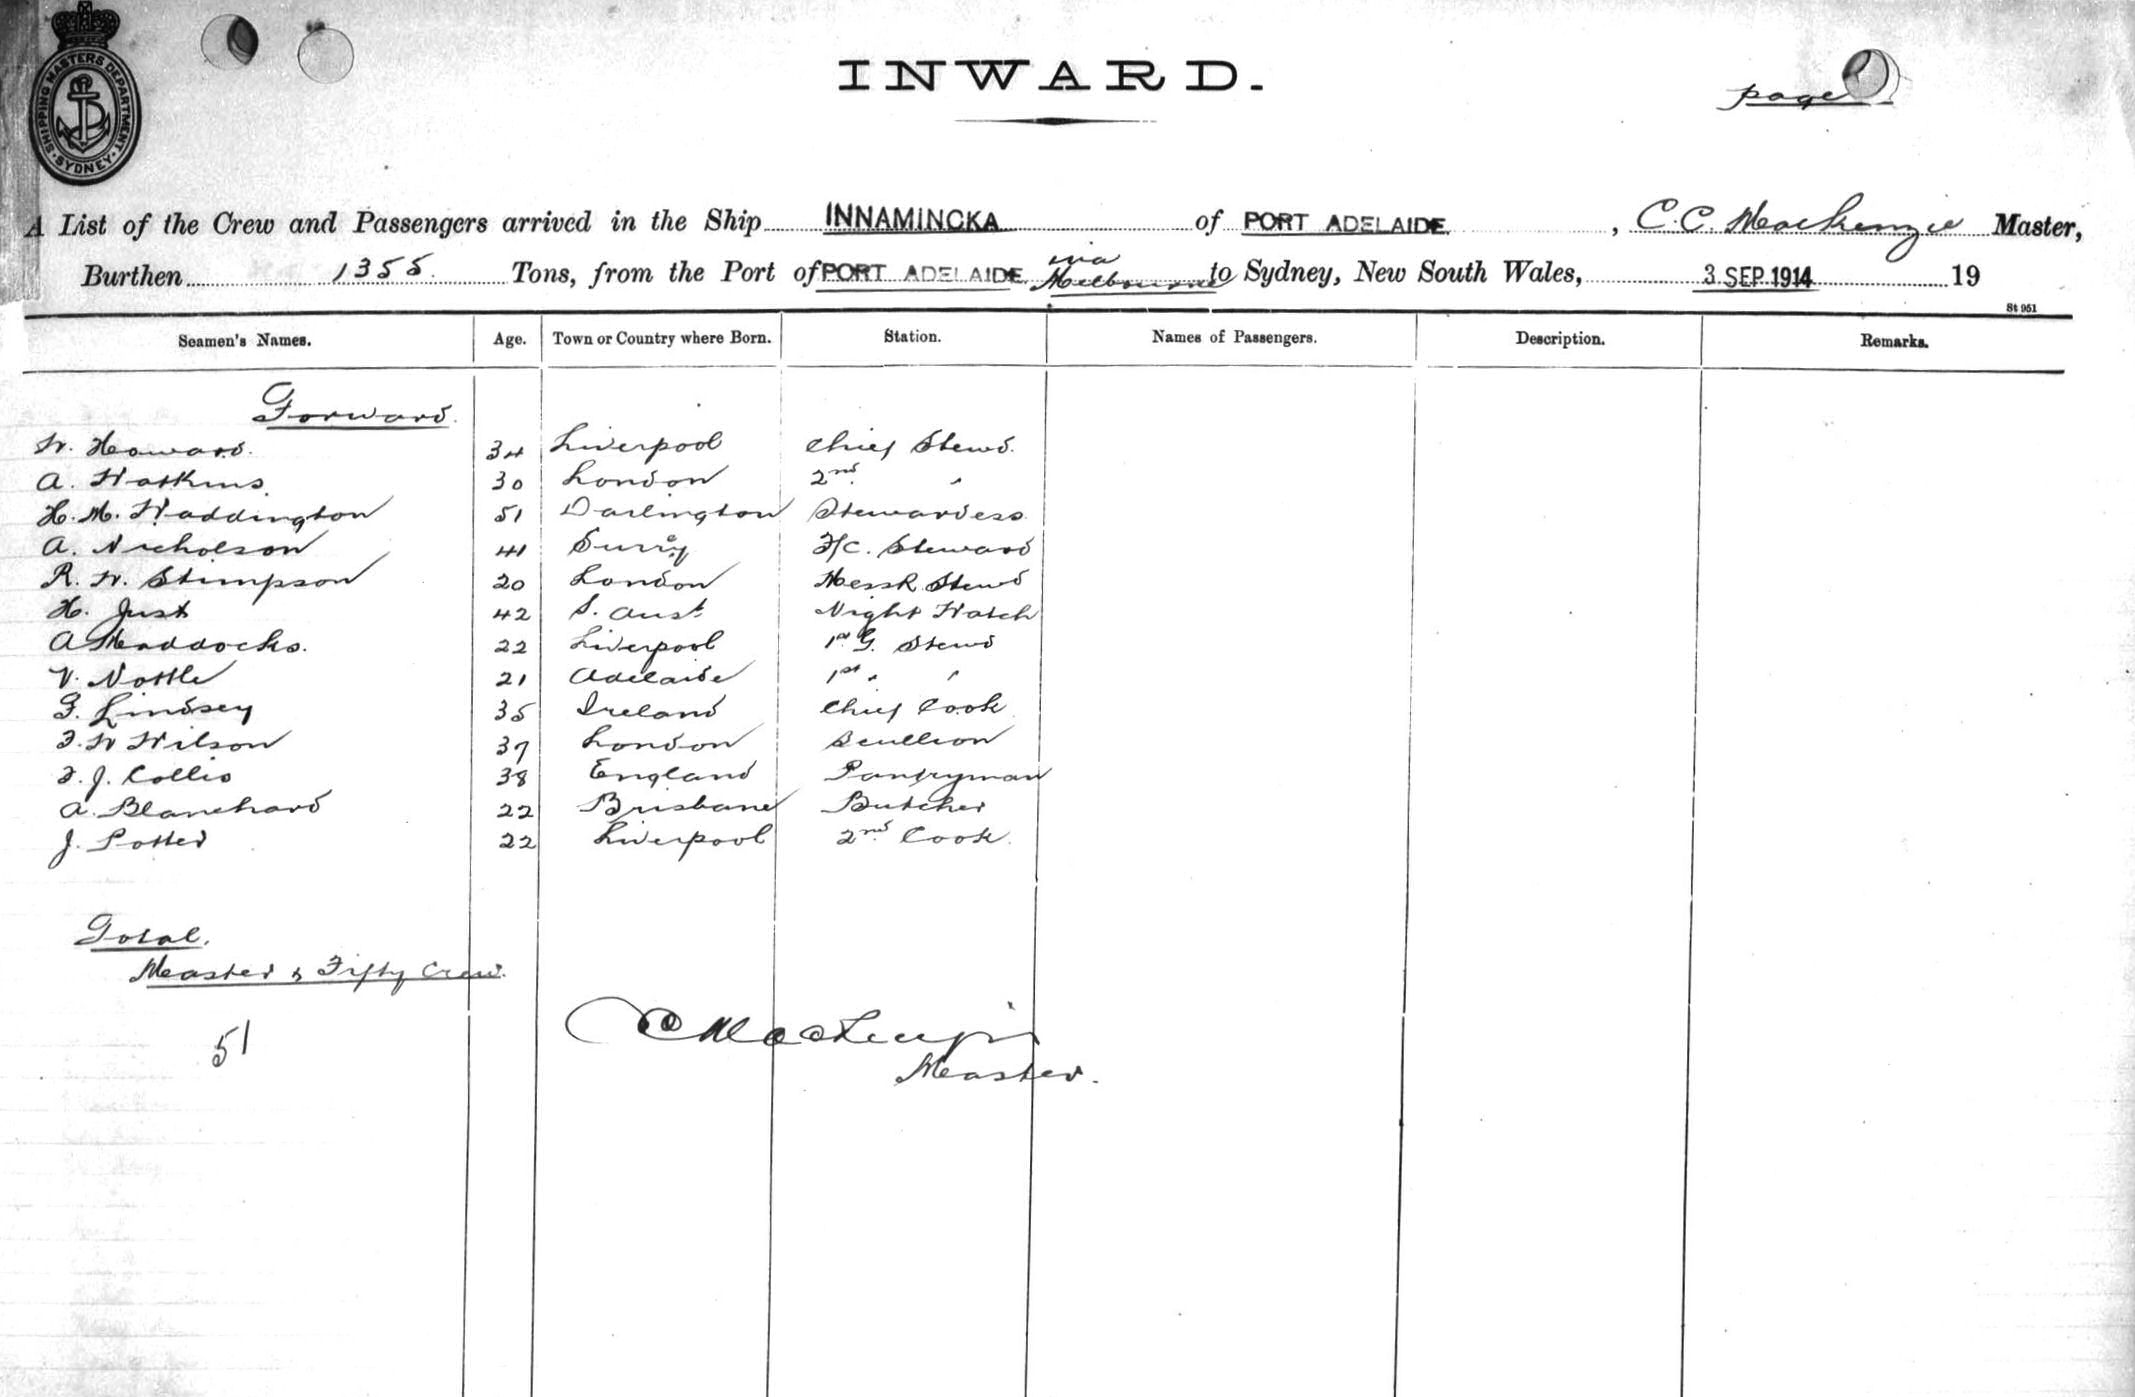 SHIPPING MASTERS DEPARTMENT SYDNEY
INWARD.
page
A List of the Crew and Passengers arrived in the Ship INNAMINCKA of PORT ADELAIDE, C. C. Mackenzie Master,
Burthen 1355 Tons, from the Port of PORT ADELAIDE via Melbourne to Sydney, New South Wales, 3 SEP. 1914 19
St 951
Seamen's Names. Age. Town or Country where Born. Station. Names of Passengers. Description. Remarks.
Forward.
W. Howard. 34 Liverpool Chief Stewd.
A. Watkins. 30 London 2nd. "
H. M. Waddington 51 Darlington Stewardess
A. Nicholson 41 Surry F/C. Steward
R. W. Stimpson 20 London MessR Stewd
H. Just 42 S. Aust. Night Watch
A Maddocks. 22 Liverpool 1st G. Stewd
V. Nottle 21 Adelaide 1st " "
G. Lindsey 35 Ireland Chief Cook
F. W Wilson 37 London Scullion
F. J. Collis 38 England Pantryman
A. Blanchard 22 Brisbane Butcher
J. Potter 22 Liverpool 2nd. Cook.
Total.
Master & Fifty Crew.
51
CC Mackenzie
Master.